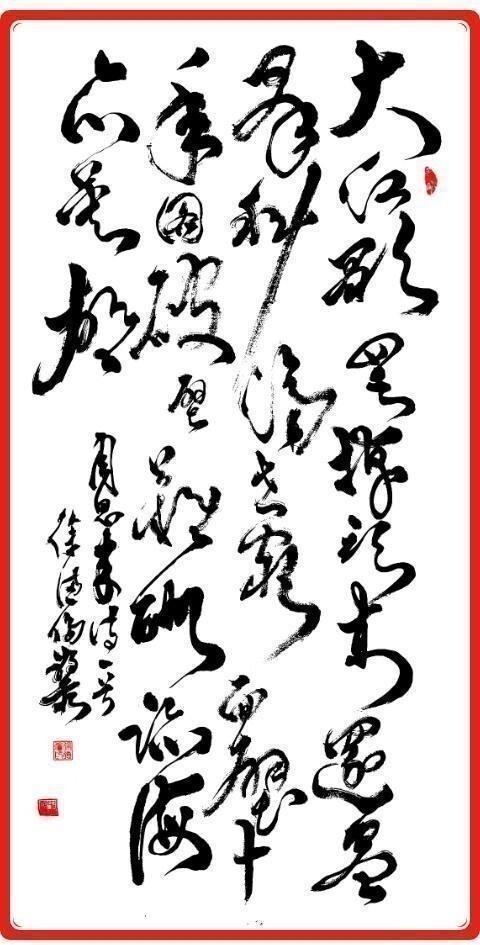 大江歌罢掉头东邃密
群科济世穷面壁十
年图破壁难酬蹈海
亦英雄
周恩来诗一首
徐